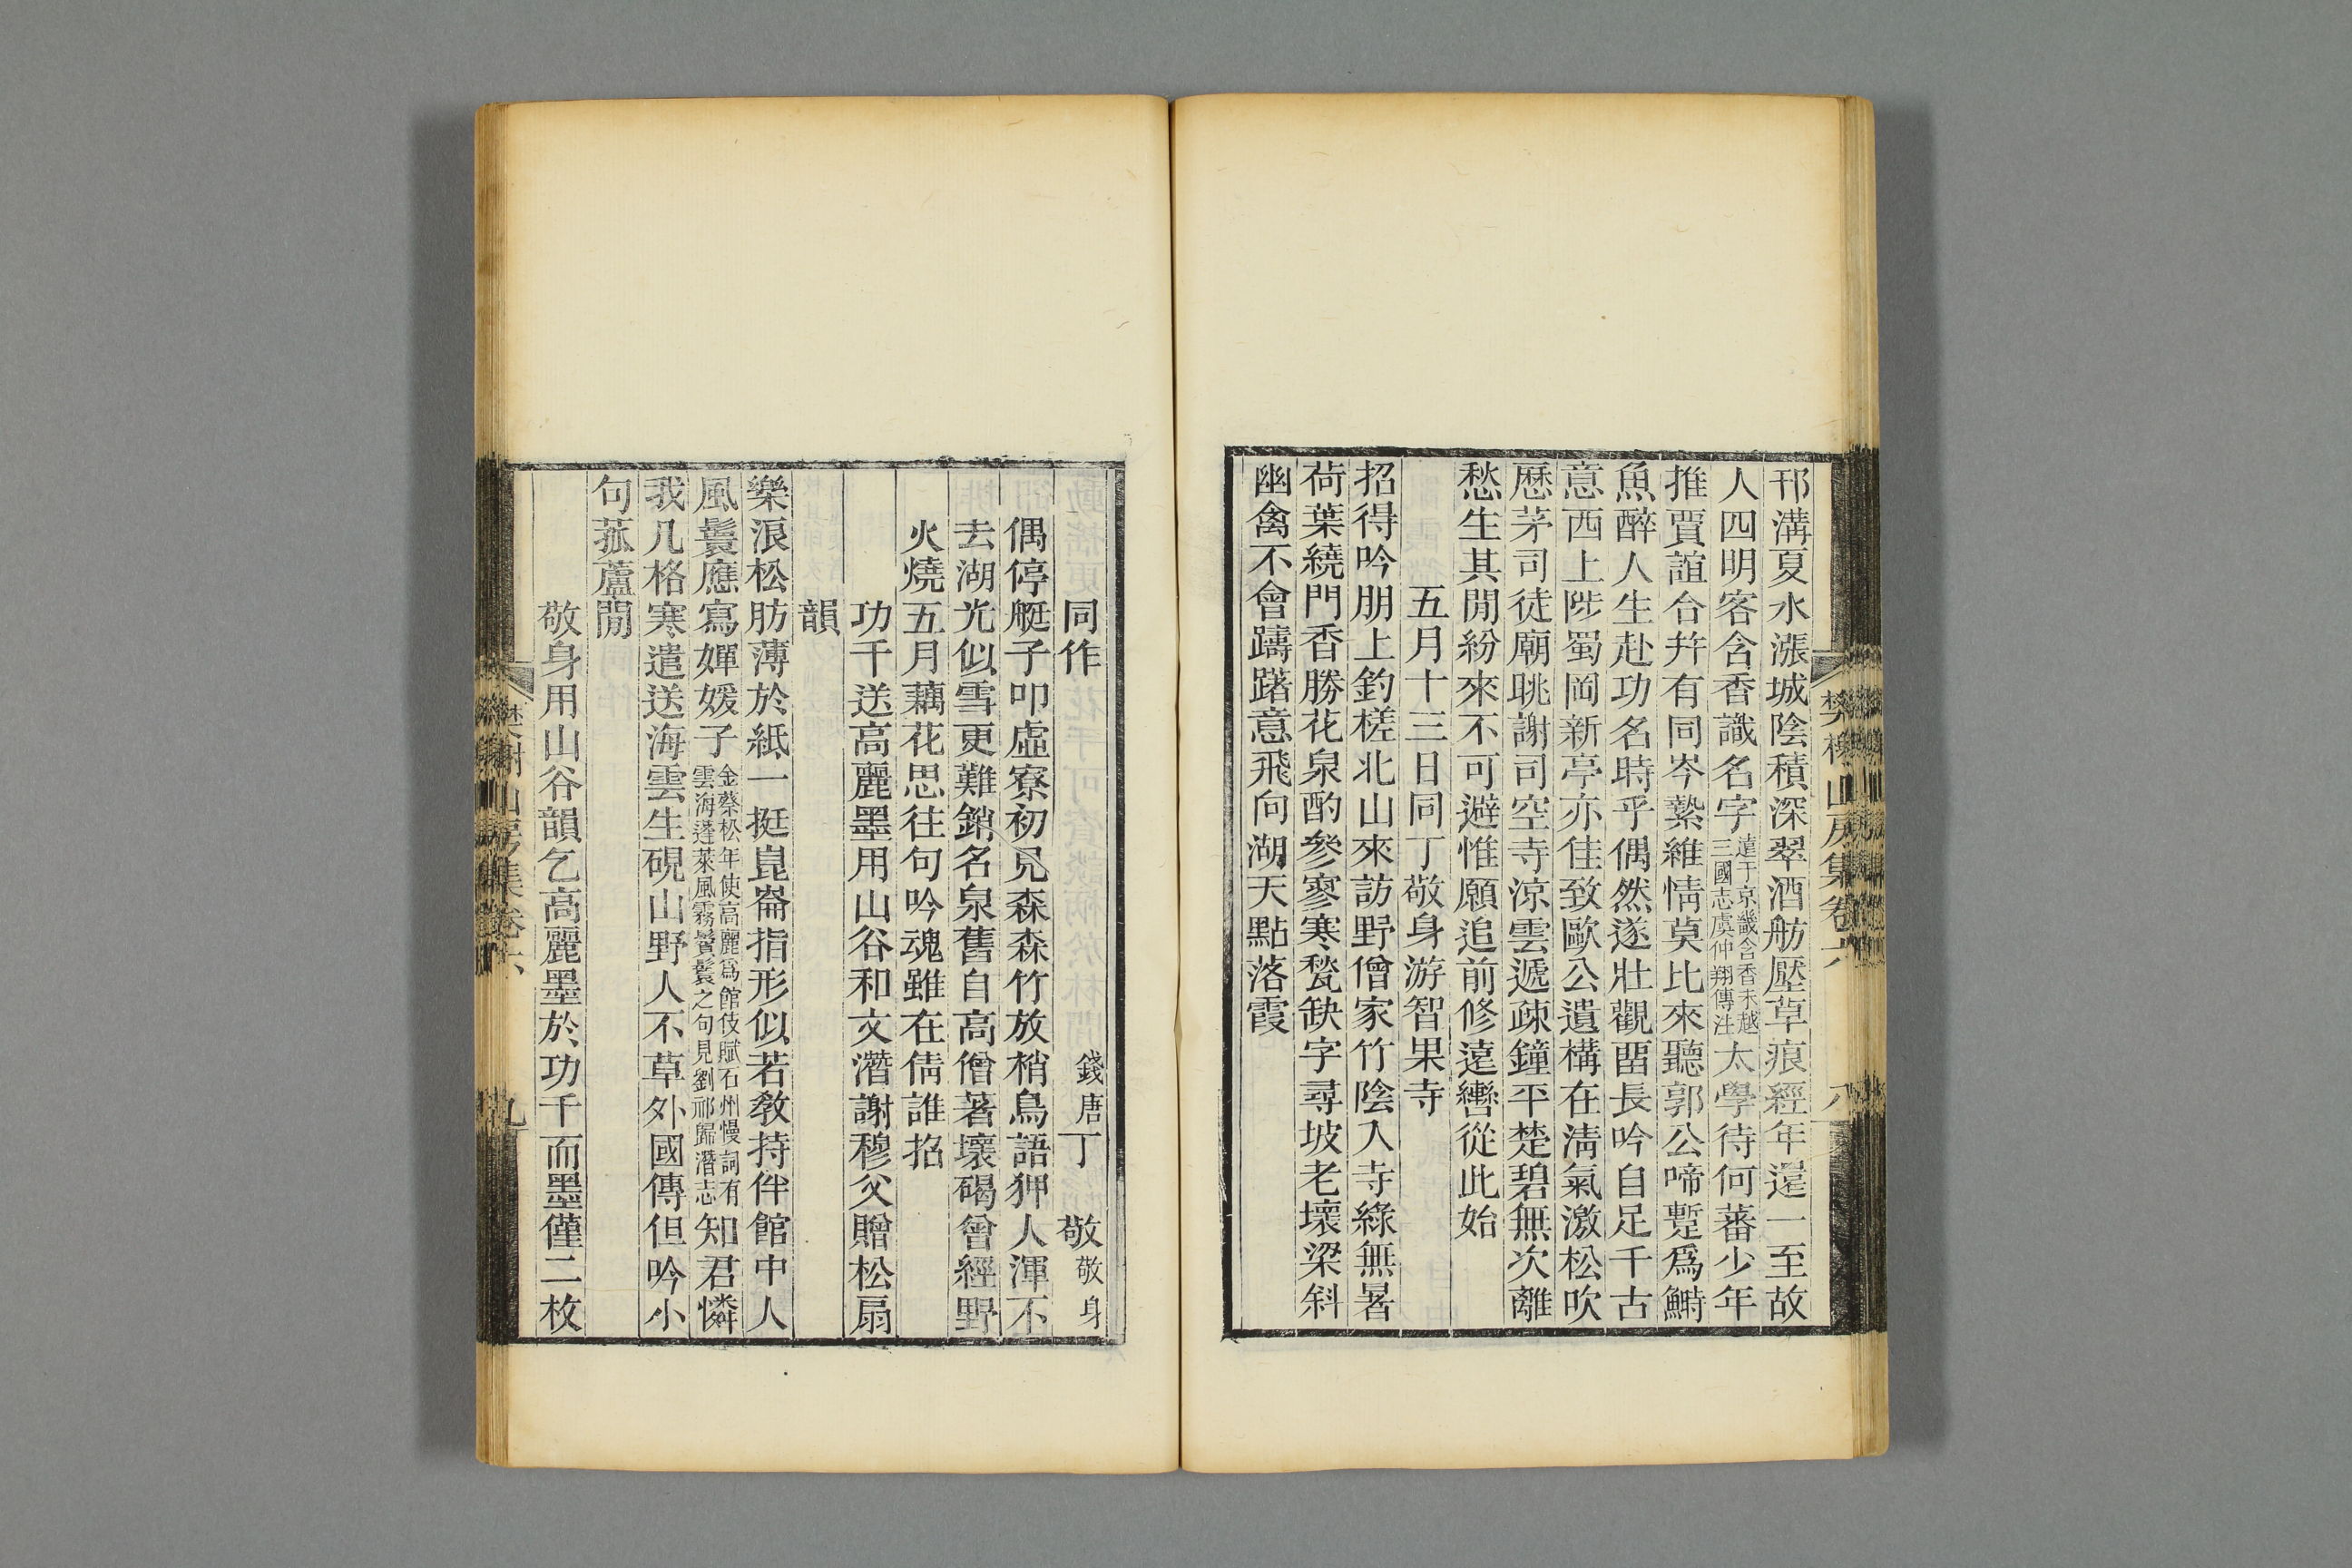 邗溝夏水漲城陰積深翠酒舫壓草痕經年還一至故
人四明客含香識名字遠于京畿含香未越三國志虞仲翔傳注太學待何蕃少年
推賈誼合并有同岑縶維情莫比來聽郭公啼蹔爲鰣
魚醉人生赴功名時乎偶然遂壯觀畱長吟自足千古
意西上陟蜀岡新亭亦佳致歐公遺構在淸氣激松吹
厯茅司徒廟眺謝司空寺涼雲遞疎鐘平楚碧無次離
愁生其閒紛來不可避惟願追前修遠轡從此始
五月十三日同丁敬身游智果寺
招得吟朋上釣槎北山來訪野僧家竹陰入寺綠無暑
荷葉繞門香勝花泉酌參寥寒甃缺字尋坡老壞梁斜
幽禽不會躊躇意飛向湖天點落霞
樊榭山房集卷六
八
同作 錢唐丁 敬敬身
偶停艇子叩虛寮初見森森竹放梢鳥語狎人渾不
去湖光似雪更難銷名泉舊自高僧著壞碣曾經野
火燒五月藕花思往句吟魂雖在倩誰招
功千送高麗墨用山谷和文潛謝穆父贈松扇
韻
樂浪松肪薄於紙一挺崑崙指形似若敎持伴館中人
風鬟應寫嬋媛子金蔡松年使高麗爲館伎賦石州慢詞有雲海蓬萊風霧鬢鬟之句見劉祁歸潛志知君憐
我几格寒遣送海雲生硯山野人不草外國傳但吟小
句菰蘆閒
敬身用山谷韻乞高麗墨於功千而墨僅二枚
樊榭山房集卷六
九